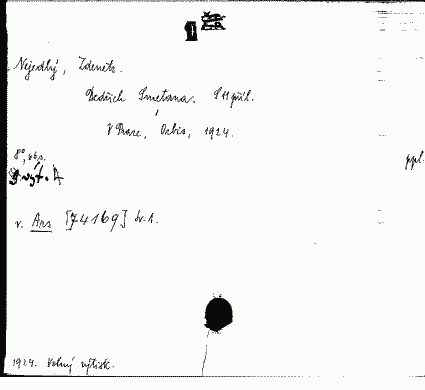 Nejedlý, Zdeněk.
Bedřich Smetana. S 11 příl.
V Praze, Orbis, 1924.
8°,
ppl.
v. Ars [74169] sv. 1.
1924. Volný výtisk.